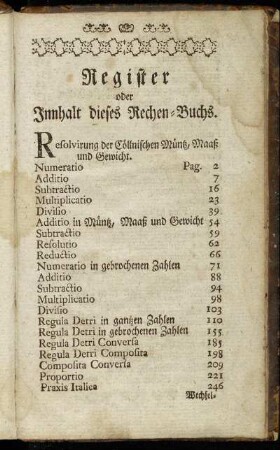 Register
oder
Innhalt dieses Rechen-Buchs.
Resolvirung der Cöllnischen Müntz, Maaß
und Gewicht.
Numeratio Pag. 2
Additio 7
Subtractio 16
Multiplicatio 23
Divisio 39
Additio in Müntz, Maaß und Gewicht 54
Subtractio 59
Resolutio 62
Reductio 66
Numeratio in gebrochenen Zahlen 71
Additio 88
Subtractio 94
Multiplicatio 98
Divisio 103
Regula Detri in gantzen Zahlen 110
Regula Detri in gebrochenen Zahlen 155
Regula Detri Conversa 185
Regula Detri Composita 198
Composita Conversa 209
Proportio 221
Praxis Italica 246
Wechsel-